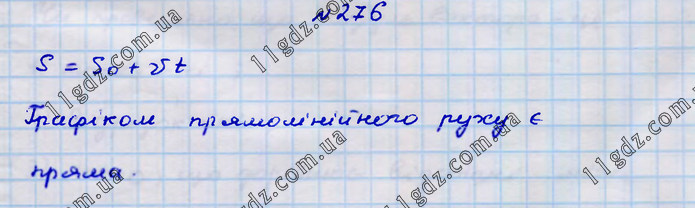 №276
S = S₀ + vt
Графіком прямолінійного руху є
пряма.
11gdz.com.ua
11gdz.com.ua
11gdz.com.ua
11gdz.com.ua
11gdz.com.ua